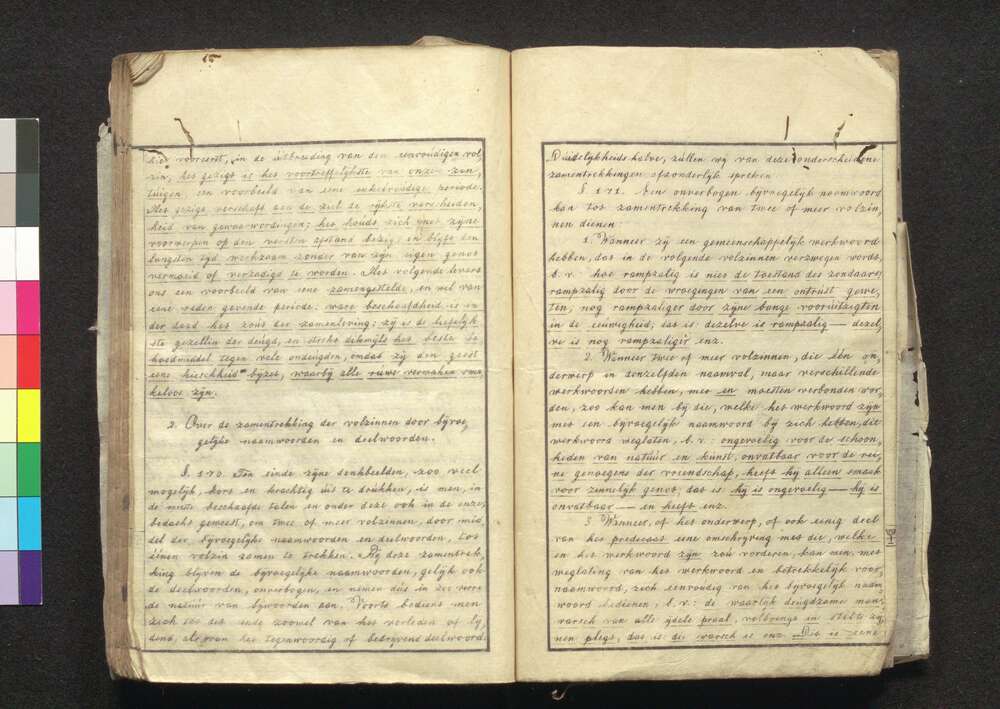 hier vooreerst, in de uitbreiding van den eenvoudigen vol,
zin, het gezigt is het voortreffelijkste van onze zin,
tuigen, een voorbeeld van eene enkelvoudige periode.
Het gezigt verschaft aan de ziel de rijkste verscheiden,
heid van gewaarwordingen; het houdt zich met zijne
voorwerpen op den versten afstand bezig; en blijft den
langsten tijd werkzaam zonder van zijn eigen genot
vermoeid of verzadigd te worden. Het volgende levert
ons een voorbeeld van eene zamengestelde, en wel van
eene reden gevende periode: ware beschaafdheid is in
der daad het zout der zamenleving: zij is de liefelijk
ste gezellin der deugd, en strekt dikwijls het beste be
hoedmiddel tegen vele ondeugden, omdat zij den geest
eene kieschheid bijzet, waarbij alle ruwe vermaken sma,
keloos zijn.
2. Over de zamentrekking der volzinnen door bijvoe,
gelijke naamwoorden en deelwoorden.
§. 170. Ten einde zijne denkbeelden, zoo veel
mogelijk, kort en krachtig uit te drukken, is men, in
de meeste beschaafde talen en onder deze ook in de onze,
bedacht geweest, om twee of meer volzinnen, door mid,
del der bijvoegelijke naamwoorden en deelwoorden, tot
éénen volzin zamen te trekken. Bij deze zamentrek,
king blijven de bijvoegelijke naamwoorden, gelijk ook
de deelwoorden, onverbogen, en nemen dus in zoo verre
de natuur van bijwoorden aan. Voorts bedient men
zich ten ten einde zoowel van het verleden of lij
dend, als van het tegenwoordig of bedrijvend deelwoord.
Duidelijkheids halve, zullen wij van deze onderscheidene
zamentrekkingen afzonderlijk spreken
§. 171. Een onverbogen bijvoegelijk naamwoord
kan tot zamentrekking van twee of meer volzin,
nen dienen:
1. Wanneer zij een gemeenschappelijk werkwoord
hebben, dat in de volgende volzinnen verzwegen wordt,
b. v: hoe rampzalig is niet de toestand des zondaars,
rampzalig door de wroegingen van een ontrust gewe,
ten, nog rampzaliger door zijne bange vooruitzigten
in de eeuwigheid, dat is dezelve is rampzalig — dezel
ve is nog rampzaliger enz.
2. Wanneer twee of meer volzinnen, die één on,
derwerp in denzelfden naamval, maar verschillende
werkwoorden hebben, met en moesten verbonden wor,
den, zoo kan men bij die, welke het werkwoord zijn
met een bijvoegelijk naamwoord bij zich hebben, dit
werkwoord weglaten, b. v.: ongevoelig voor de schoon,
heden van natuur en kunst, onvatbaar voor de rei,
ne genoegens der vriendschap, heeft hij alleen smaak
voor zinnelijk genot; dat is hij is ongevoelig — hij is
onvatbaar — en heeft enz.
3 Wanneer, of het onderwerp, of ook eenig deel
van het predicaat eene omschrijving met die, welke
en het werkwoord zijn zou vorderen, kan men, met
weglating van het werkwoord en betrekkelijk voor,
naamwoord, zich eenvoudig van het bijvoegelijk naam
woord bedienen; b. v: de waarlijk deugdzame man,
warsch van alle ijdele praal, volbrengt in stilte zij,
nen pligt, dat is die warsch is enz. Dit is eene